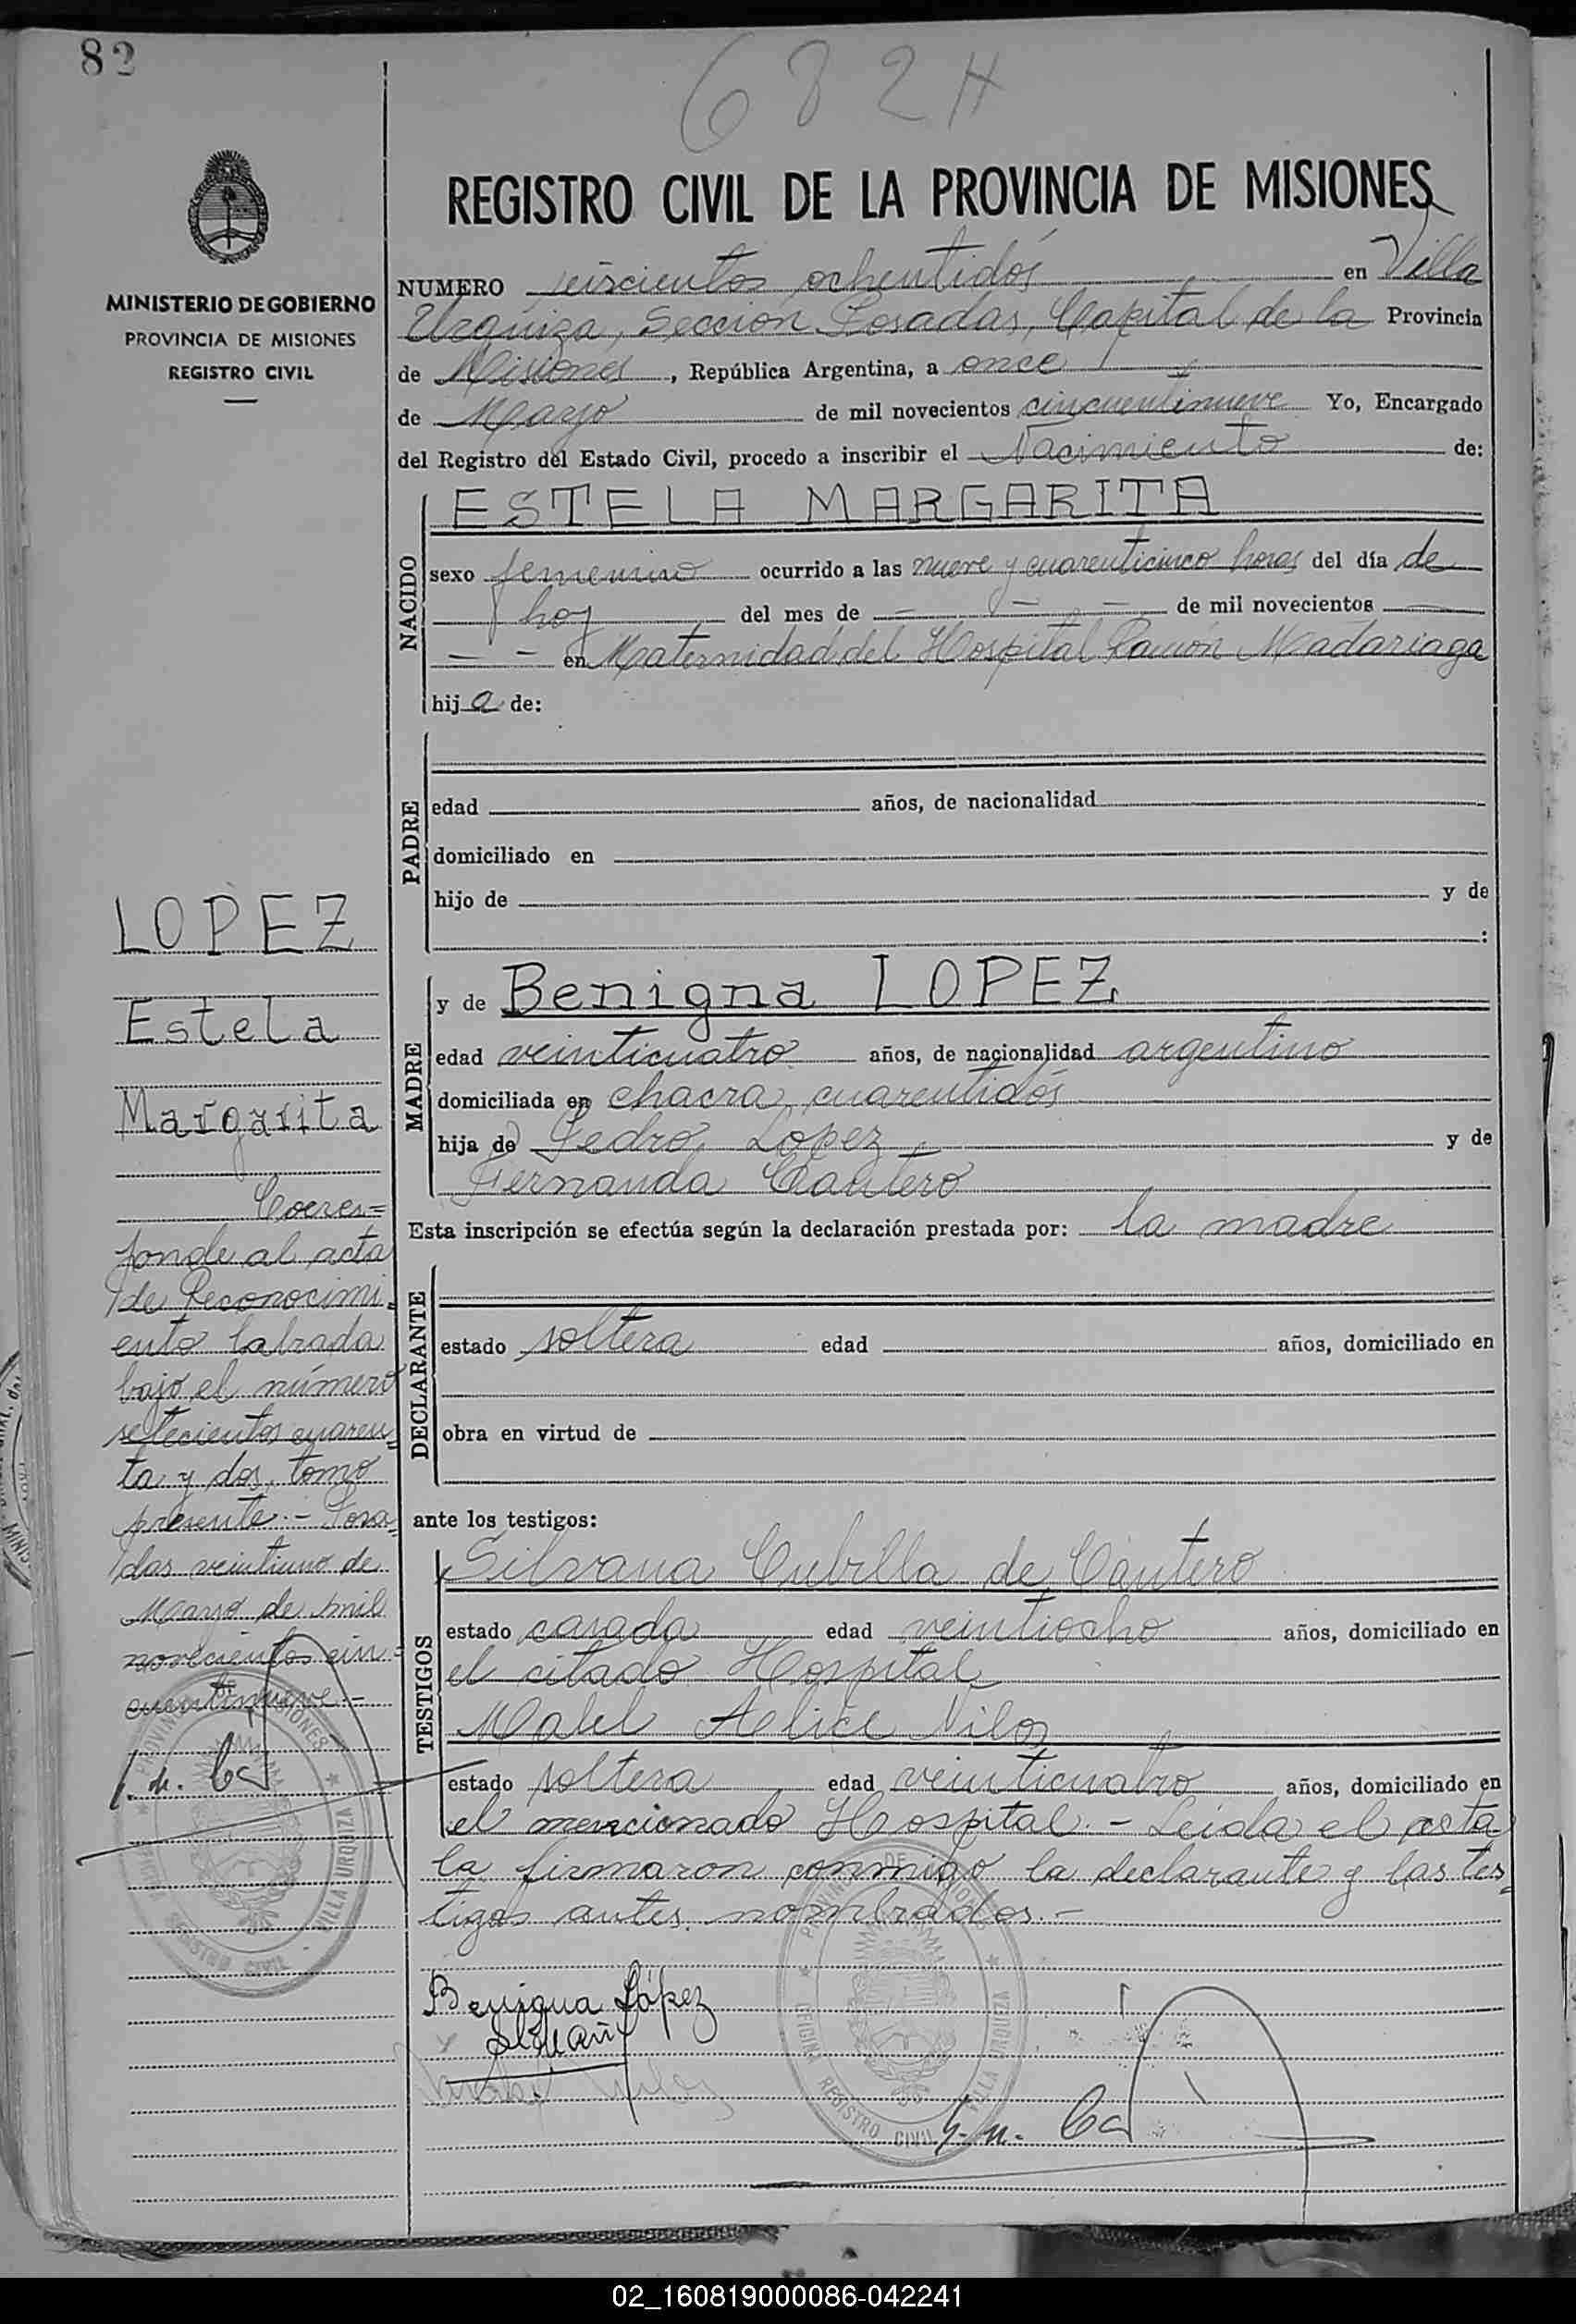 82
682 H
MINISTERIO DE GOBIERNO
PROVINCIA DE MISIONES
REGISTRO CIVIL
REGISTRO CIVIL DE LA PROVINCIA DE MISIONES
NUMERO seiscientos ochentidós en Villa
Urquiza, Sección Posadas, Capital de la Provincia
de Misiones, República Argentina, a once
de Mayo de mil novecientos cincuentinueve Yo, Encargado
del Registro del Estado Civil, procedo a inscribir el Nacimiento de:
NACIDO
ESTELA MARGARITA
sexo femenino ocurrido a las nueve y cuarenticinco horas del día de
hoy del mes de - - - de mil novecientos -
- - en Maternidad del Hospital Ramón Madariaga
hij a de:
PADRE
edad años, de nacionalidad
domiciliado en
hijo de y de
:
MADRE
y de Benigna LOPEZ
edad veinticuatro años, de nacionalidad argentino
domiciliada en chacra cuarentidós
hija de Pedro Lopez y de
Fernanda Cantero
Esta inscripción se efectúa según la declaración prestada por: la madre
DECLARANTE
estado soltera edad años, domiciliado en
obra en virtud de
ante los testigos:
TESTIGOS
Silvana Cubilla de Cantero
estado casada edad veintiocho años, domiciliado en
el citado Hospital
Mabel Nilo
estado soltera edad veinticuatro años, domiciliado en
el mencionado Hospital.- Leida el acta
la firmaron conmigo la declarante y las tes=
tigos antes nombrados.-
Benigna López
LOPEZ
Estela
Margarita
Corres=
ponde al acta
de Reconocimi=
ento labrada
bajo el número
setecientos cuaren=
ta y dos, tomo
presente.- Posa=
das veintiuno de
Mayo de mil
novecientos cin=
cuentinueve.-
PROVINCIA DE MISIONES
OFICINA REGISTRO CIVIL - VILLA URQUIZA
PROVINCIA DE MISIONES
OFICINA REGISTRO CIVIL VILLA URQUIZA
02_160819000086-042241